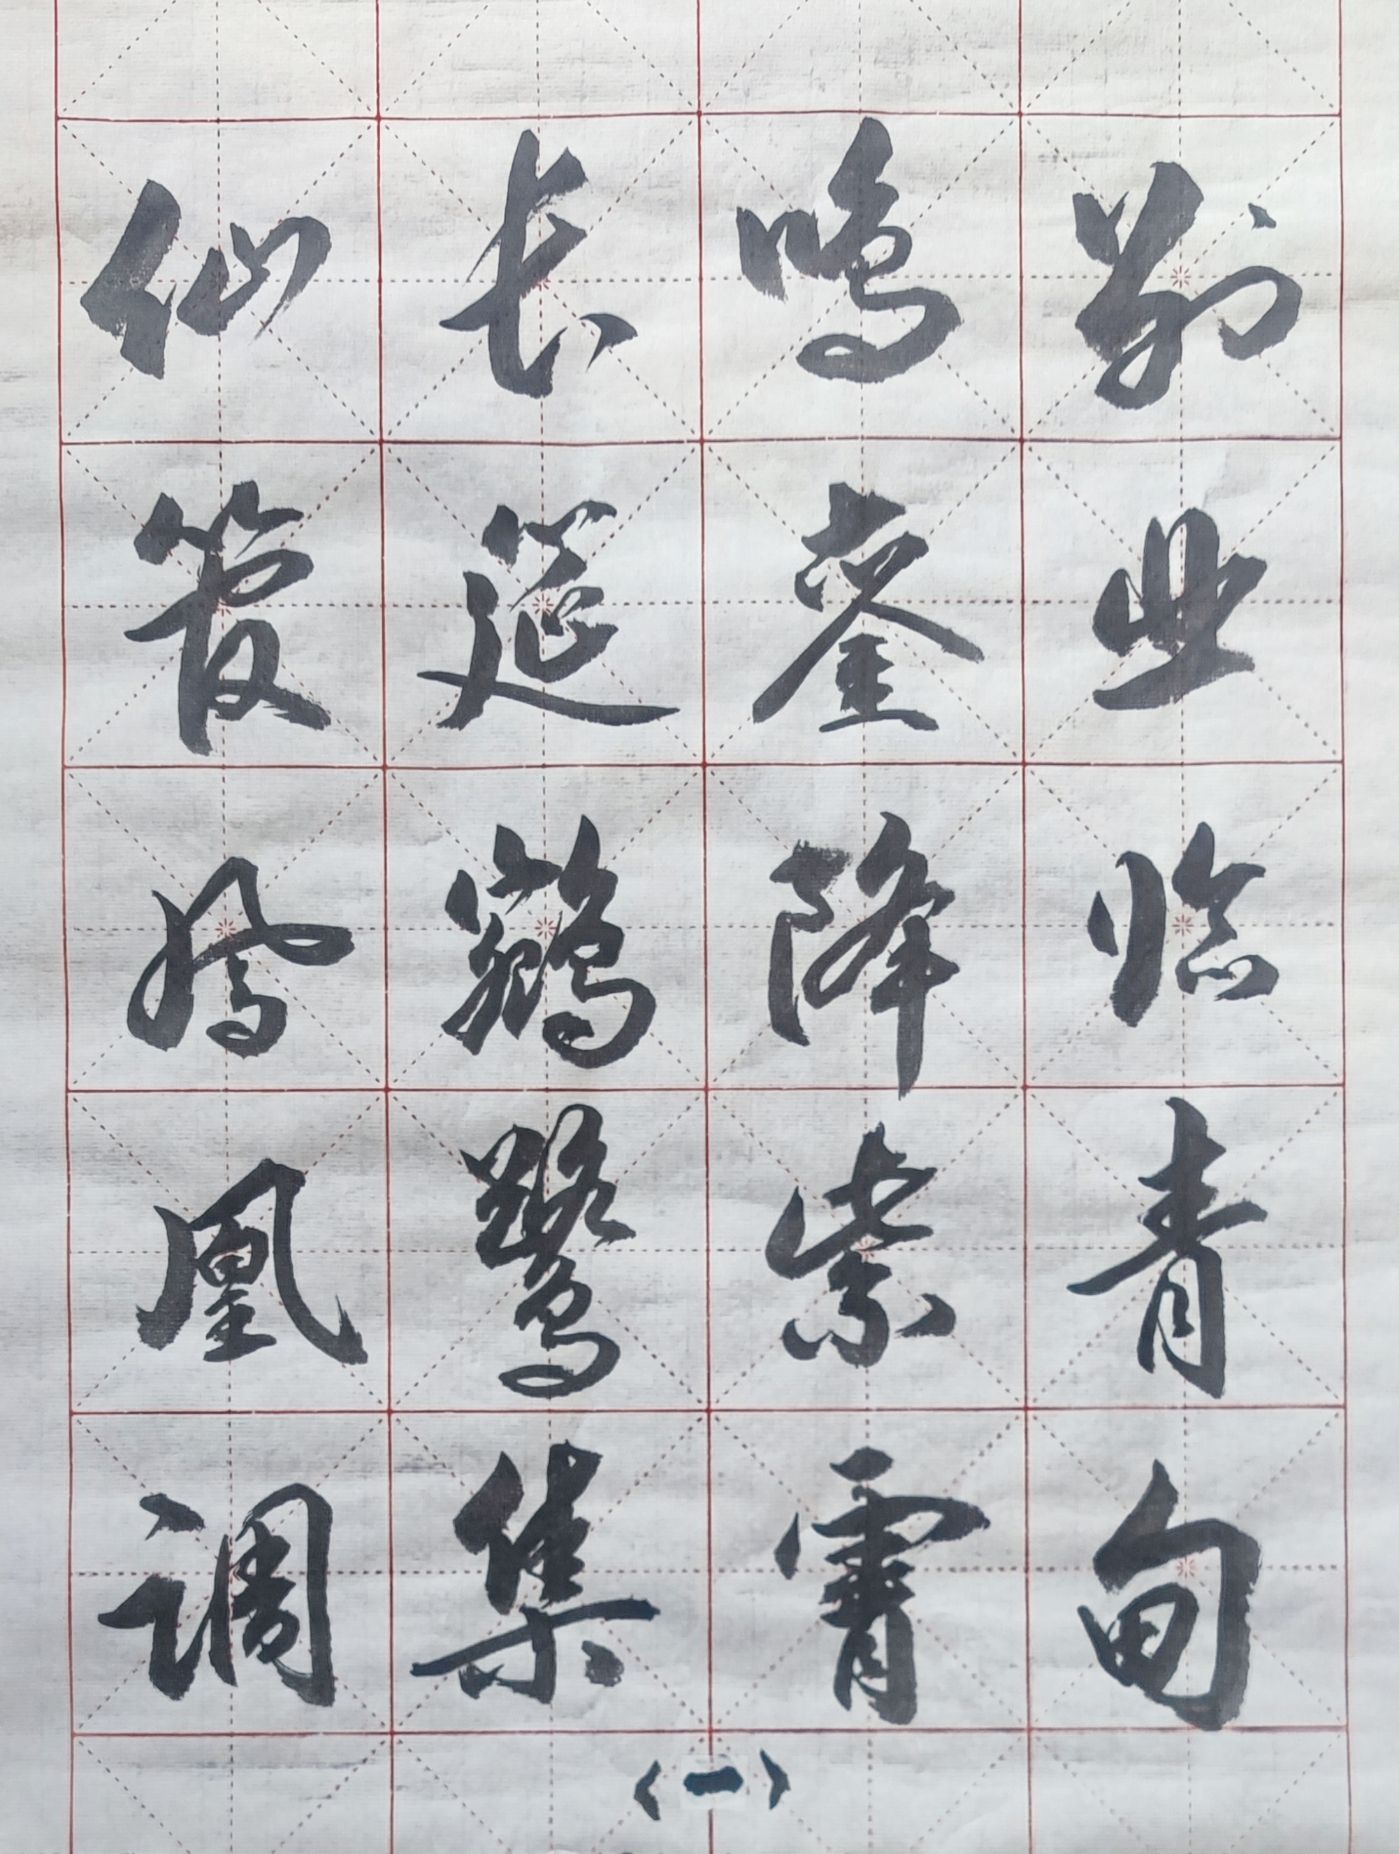 别业临青甸
鸣銮降紫霄
长筵鹓鹭集
仙管凤凰调
（一）